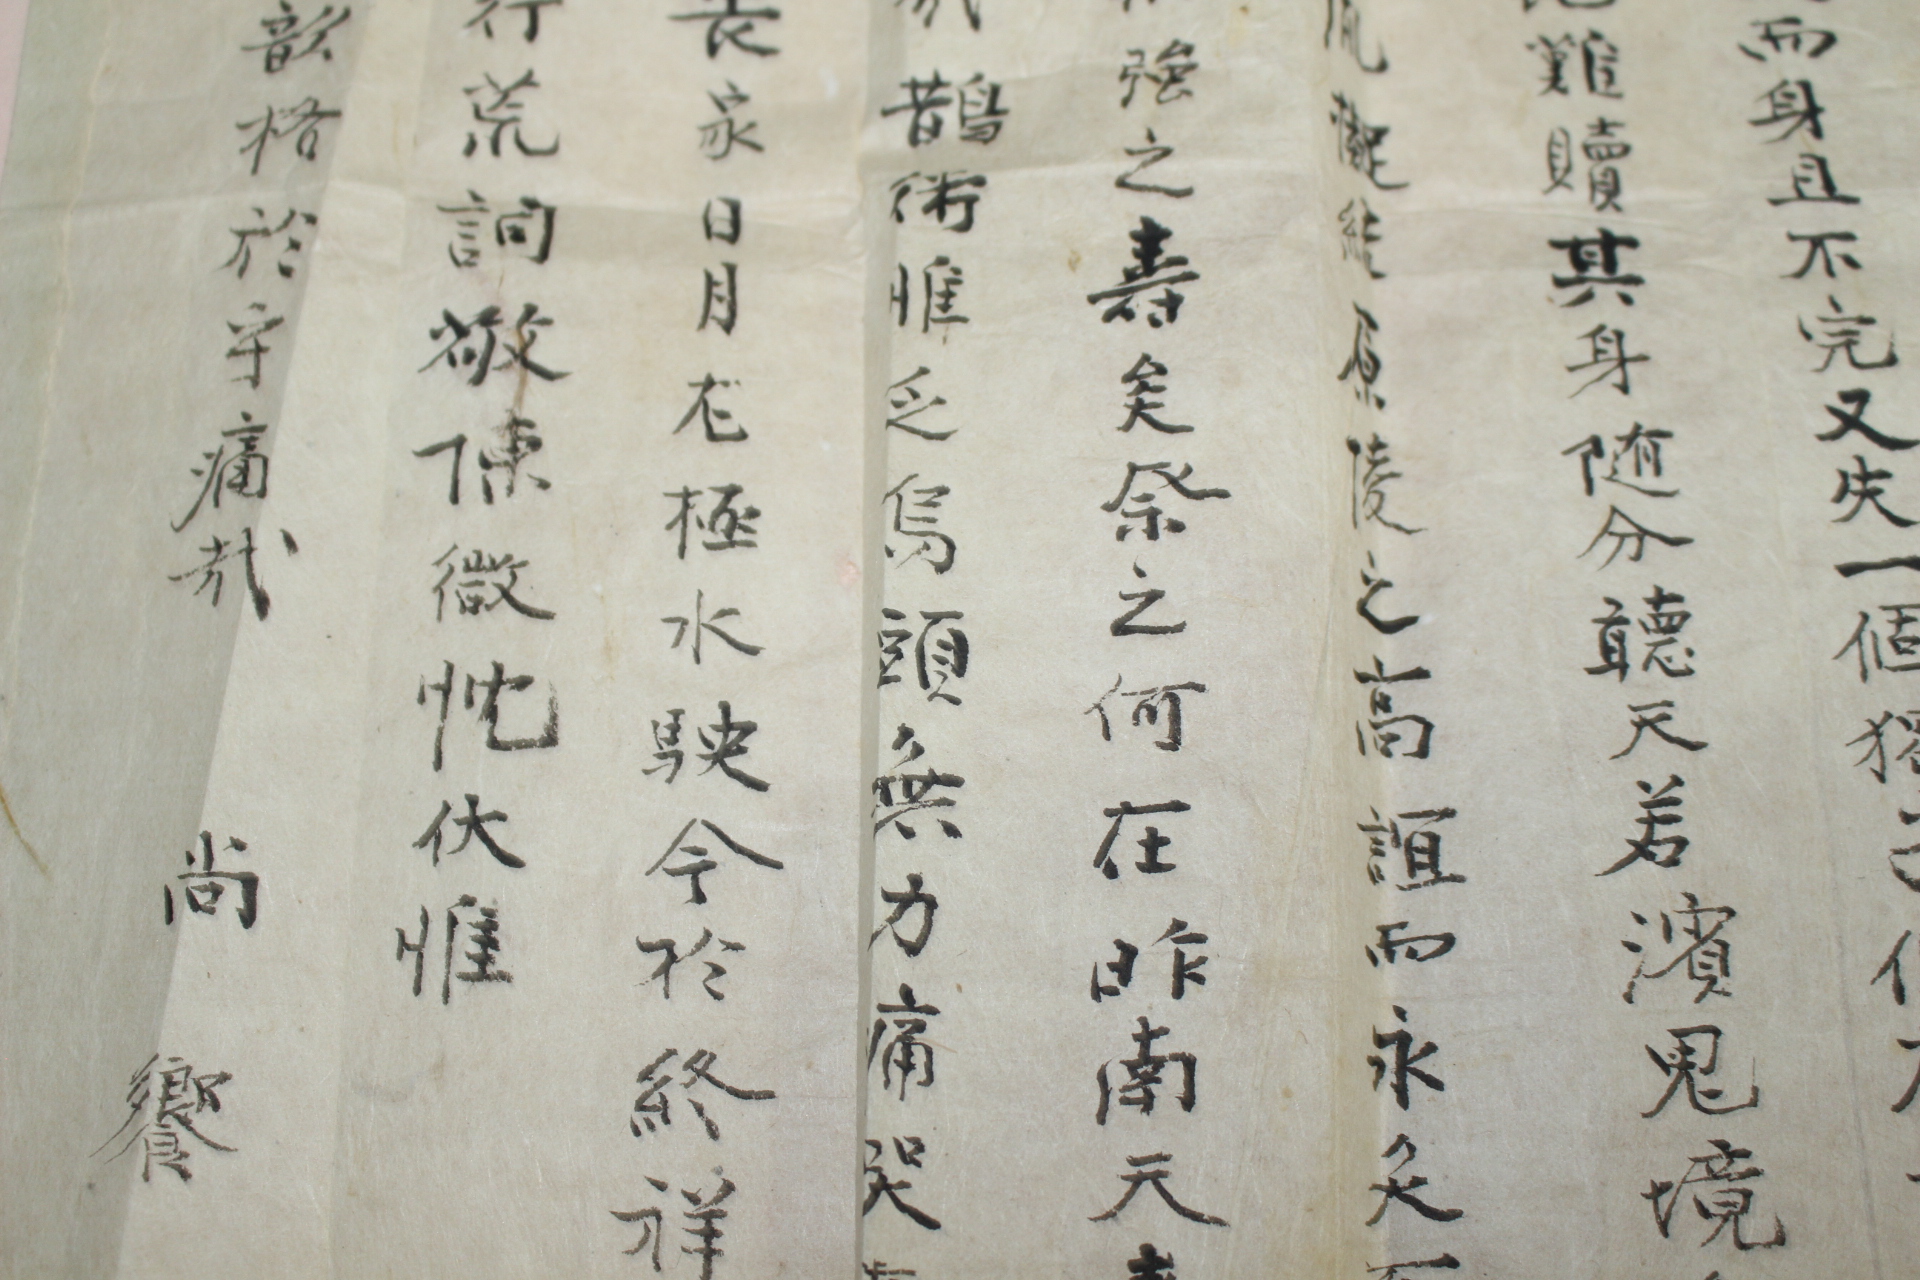 而身且不完又失一個獨子
難贖其身随分聽天若濱鬼境
原陵之高誼而永矣
強之壽矣祭之何在昨南天
鵲術惟乏烏頭無力痛哭
喪家日月尤極水駛今於終祥
行荒詞敬陳微忱伏惟
歆格於乎痛哉 尚 饗